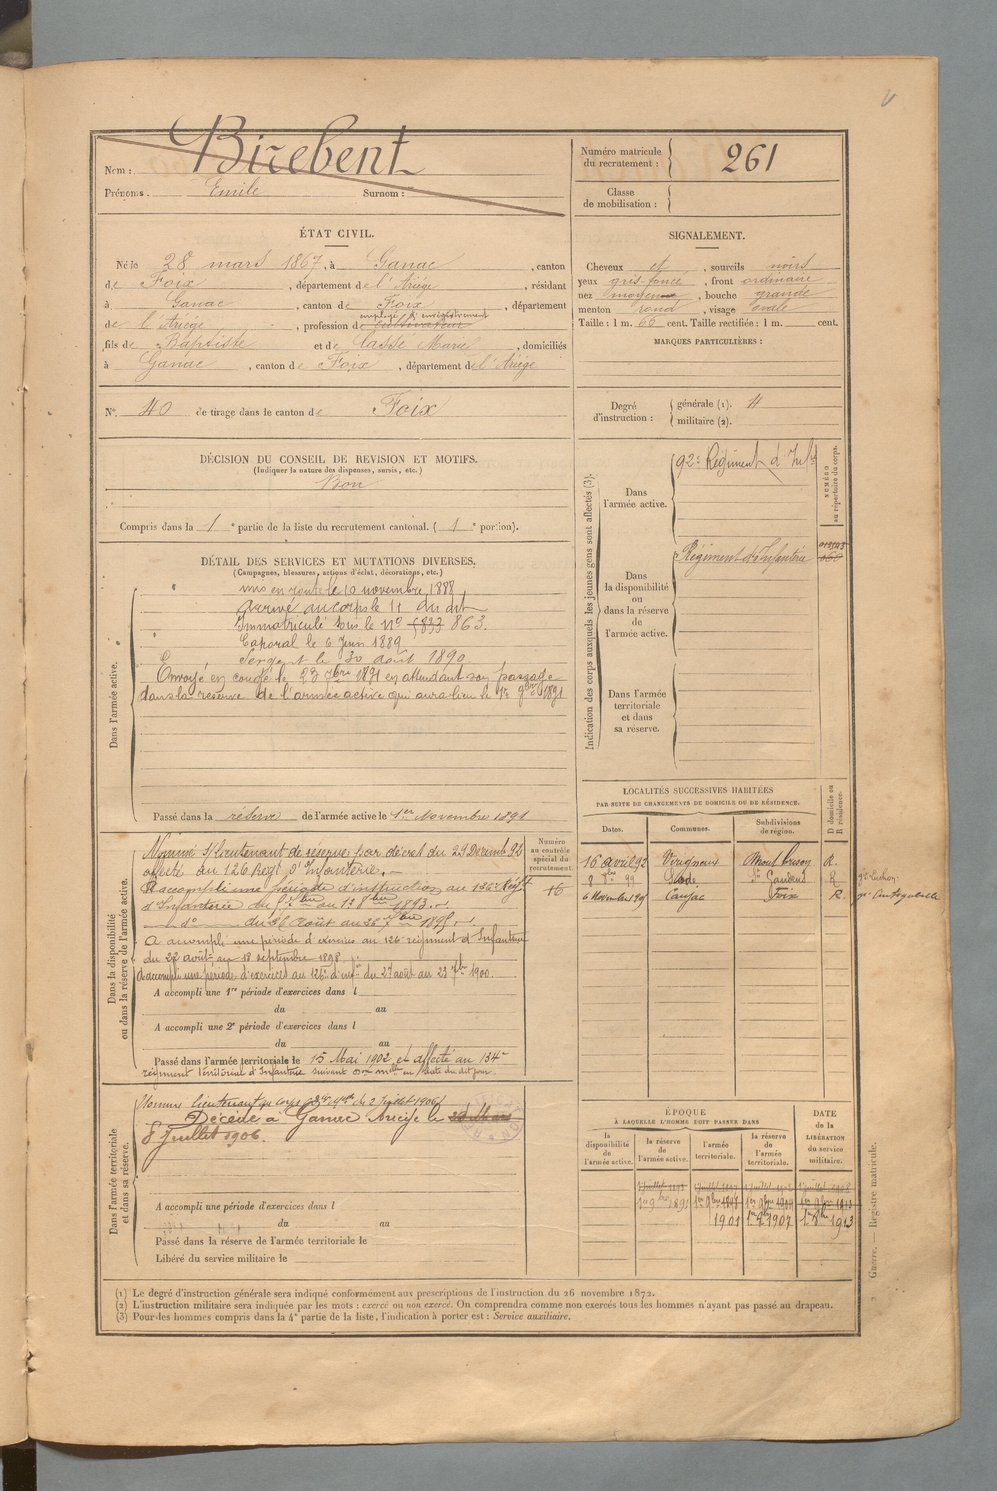 Nom : Birebent
Prénoms. Emile Surnom :
Numéro matricule du recrutement : 261
Classe de mobilisation :
ÉTAT CIVIL.
Né le 28 mars 1867, à Ganac, canton
de Foix, département de l'Ariége, résidant
à Ganac, canton de Foix, département
employé d'enregistrement
de l'Ariége, profession de cultivateur
fils de Baptiste et de Casse Marie, domiciliés
à Ganac, canton de Foix, département de l'Ariége
N° 40 de tirage dans le canton de Foix
SIGNALEMENT.
Cheveux et, sourcils noirs
yeux gris foncé, front ordinaire
nez moyen, bouche grande
menton rond, visage ovale
Taille : 1 m. 66 cent. Taille rectifiée : 1 m. cent.
MARQUES PARTICULIÈRES :
Degré d'instruction : générale (1). 4
militaire (2).
DÉCISION DU CONSEIL DE REVISION ET MOTIFS.
(Indiquer la nature des dispenses, sursis, etc.)
Bon
Compris dans la 1e partie de la liste du recrutement cantonal. (1e portion).
DÉTAIL DES SERVICES ET MUTATIONS DIVERSES.
(Campagnes, blessures, actions d'éclat, décorations, etc.)
Dans l'armée active.
mis en route le 10 novembre 1888
Arrivé au corps le 11 du dit
Immatriculé sous le N° 5833 863.
Caporal le 6 Juin 1889
Sergent le 30 août 1890
Envoyé en congé le 23 7bre 1891 en attendant son passage
dans la réserve de l'armée active qui aura lieu le 1er 9bre 1891
Passé dans la réserve de l'armée active le 1er Novembre 1891
Indication des corps auxquels les jeunes gens sont affectés (3).
Dans l'armée active.
92e Régiment d'Infie
NUMÉRO au répertoire du corps.
Dans la disponibilité ou dans la réserve de l'armée active.
Régiment d'Infanterie
Dans l'armée territoriale et dans sa réserve.
LOCALITÉS SUCCESSIVES HABITÉES
PAR SUITE DE CHANGEMENTS DE DOMICILE OU DE RÉSIDENCE.
Dates. Communes. Subdivisions de région. D domicile ou R résidence.
16 avril 93 R.
8 99 St Gaudens R
6 Novembre 1905 Foix R.
Dans la disponibilité ou dans la réserve de l'armée active.
Numéro au contrôle spécial du recrutement.
16
Nommé s/lieutenant de réserve par décret du 29 Décembre 92
affecté au 126 Regt d'Infanterie.
A accompli une période d'instruction au 126e Régt
d'Infanterie du
du 26 Août au 1895
A accompli une période d'exercices au 126e régiment d'Infanterie
du 22 août au 18 septembre 1898
A accompli une période d'exercices au 126e d'infie du 27 août au 23 7bre 1900.
A accompli une 1re période d'exercices dans l
du au
A accompli une 2e période d'exercices dans l
du au
Passé dans l'armée territoriale le 15 Mai 1902 et affecté au 134e
régiment territorial d'Infanterie suivant en date du dit jour
Dans l'armée territoriale et dans sa réserve.
Nommé lieutenant au corps du 2 Juillet 1906
Décédé à Ganac Ariège le
8 Juillet 1906.
A accompli une période d'exercices dans l
du au
Passé dans la réserve de l'armée territoriale le
Libéré du service militaire le
ÉPOQUE
À LAQUELLE L'HOMME DOIT PASSER DANS
la disponibilité de l'armée active. la réserve de l'armée active. l'armée territoriale. la réserve de l'armée territoriale.
DATE de la LIBÉRATION du service militaire.
1er 9bre 1891
1901 1907 1913
(1) Le degré d'instruction générale sera indiqué conformément aux prescriptions de l'instruction du 26 novembre 1872.
(2) L'instruction militaire sera indiquée par les mots : exercé ou non exercé. On comprendra comme non exercés tous les hommes n'ayant pas passé au drapeau.
(3) Pour des hommes compris dans la 4e partie de la liste, l'indication à porter est : Service auxiliaire.
Guerre. — Registre matricule.